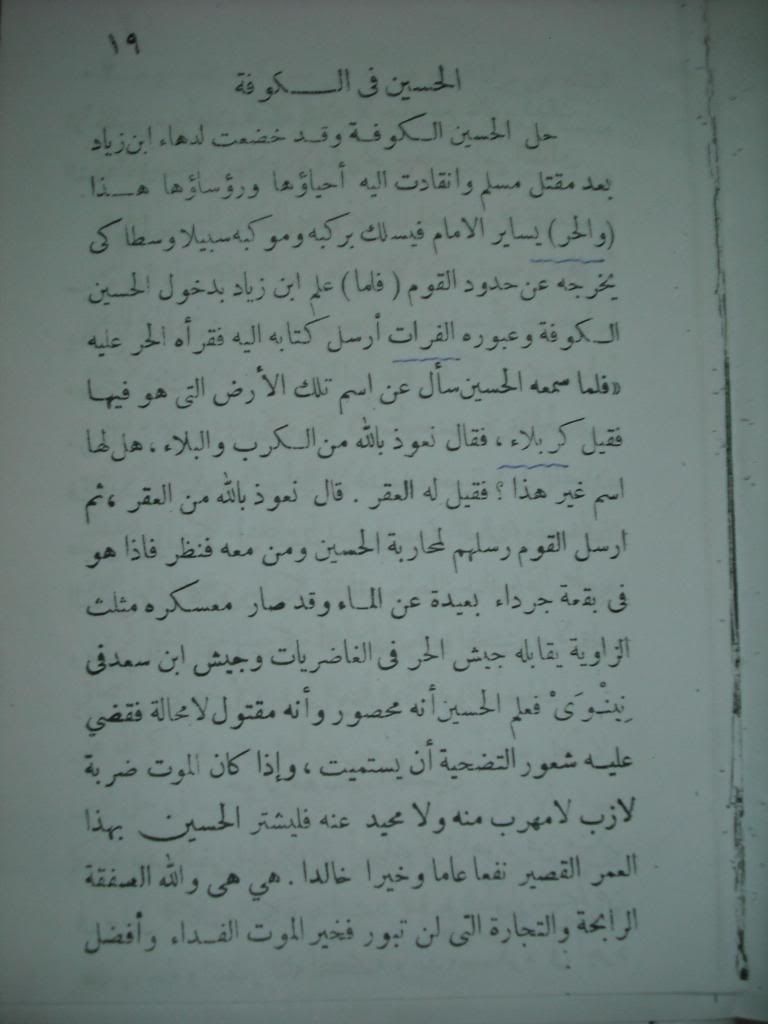 ١٩
الحسين فى الكوفة
حل الحسين الكوفة وقد خضعت لدهاء ابن زياد
بعد مقتل مسلم وانقادت اليه أحياؤها ورؤساؤها هذا
(والحر) يساير الامام فيسلك بركبه وموكبه سبيلا وسطا كى
يخرجه عن حدود القوم (فلما) علم ابن زياد بدخول الحسين
الكوفة وعبوره الفرات أرسل كتابه اليه فقرأه الحر عليه
«فلما سمعه الحسين سأل عن اسم تلك الأرض التى هو فيها
فقيل كربلاء ، فقال نعوذ بالله من الكرب والبلاء ، هل لها
اسم غير هذا ؟ فقيل له العقر . قال نعوذ بالله من العقر ، ثم
ارسل القوم رسلهم لمحاربة الحسين ومن معه فنظر فاذا هو
فى بقعة جرداء بعيدة عن الماء وقد صار معسكره مثلث
الزاوية يقابله جيش الحر فى الغاضريات وجيش ابن سعد فى
نِينْوَىْ فعلم الحسين أنه محصور وأنه مقتول لامحالة فقضي
عليه شعور التضحية أن يستميت ، وإذا كان الموت ضربة
لازب لامهرب منه ولا محيد عنه فليشتر الحسين بهذا
العمر القصير نفعا عاما وخيرا خالدا . هي هى والله الصفقة
الرابحة والتجارة التى لن تبور فخير الموت الفداء وأفضل